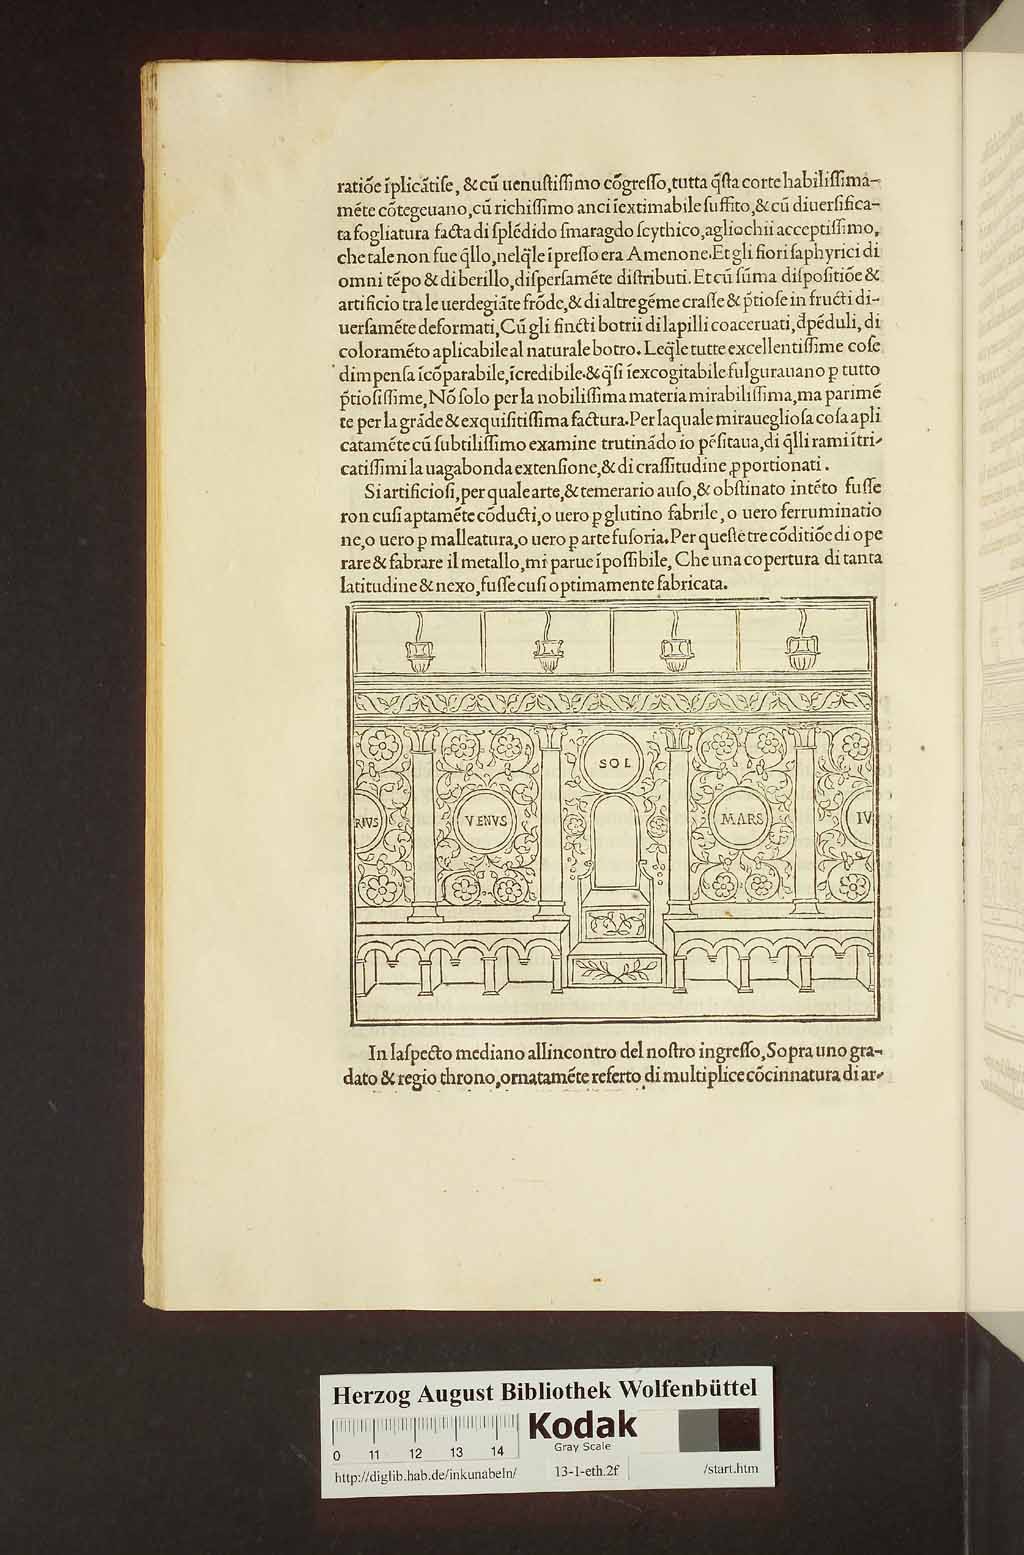 ratiōe īplicātiſe, & cū uenuſtiſſimo cōgreſſo, tutta q̄ſta corte habiliſſima-
mēte cōtegeuano, cū richiſſimo anci īextimabile ſuffito, & cū diuerſifica-
ta fogliatura facta di ſplēdido ſmaragdo ſcythico, agliochii acceptiſſimo,
che tale non fue q̄llo, nelq̄le īpreſſo era Amenone. Et gli fiori ſaphyrici di
omni tēpo & di berillo, diſperſamēte diſtributi. Et cū ſūma diſpoſitiōe &
artificio tra le uerdegiāte frōde, & di altre gēme craſſe & p̄tioſe in fructi di-
uerſamēte deformati, Cū gli fincti botrii di lapilli coaceruati, d̄pēduli, di
coloramēto aplicabile al naturale botro. Leq̄le tutte excellentiſſime coſe
dimpenſa īcōparabile, īcredibile & q̄ſi īexcogitabile fulgurauano ꝑ tutto
p̄tioſiſſime, Nō ſolo per la nobiliſſima materia mirabiliſſima, ma parimē
te per la grāde & exquiſitiſſima factura. Per laquale miraueglioſa coſa apli
catamēte cū ſubtiliſſimo examine trutinādo io pēſitaua, di q̄lli rami ītri-
catiſſimi la uagabonda extenſione, & di craſſitudine ꝓportionati.
Si artificioſi, per quale arte, & temerario auſo, & obſtinato intēto fuſſe
ron cuſi aptamēte cōducti, o uero ꝑ glutino fabrile, o uero ferruminatio
ne, o uero ꝑ malleatura, o uero ꝑ arte fuſoria. Per queſte tre cōditiōe di ope
rare & fabrare il metallo, mi parue īpoſſibile, Che una copertura di tanta
latitudine & nexo, fuſſe cuſi optimamente fabricata.
SOL
RIVS VENVS MARS IV
In laſpecto mediano allincontro del noſtro ingreſſo, Sopra uno gra-
dato & regio throno, ornatamēte referto di multiplice cōcinnatura di ar-
Herzog August Bibliothek Wolfenbüttel
0 11 12 13 14
Kodak
Gray Scale
http://diglib.hab.de/inkunabeln/ 13-1-eth.2f /start.htm